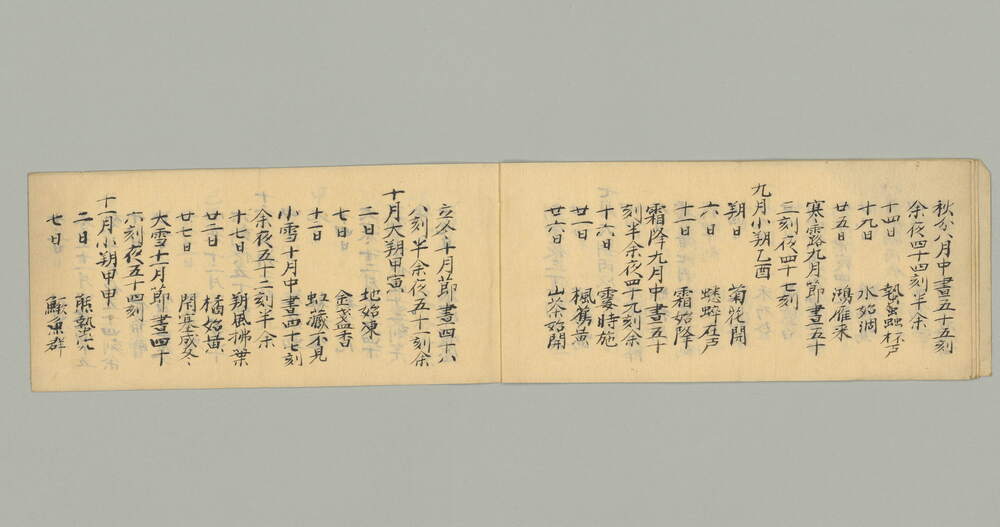 秋分八月中晝五十五刻
余夜四十四刻半余
十四日 蟄蟲坏戸
十九日 水始涸
廿五日 鴻雁来
寒露九月節晝五十
三刻夜四十七刻
九月小朔乙酉
朔日 菊花開
六日 蟋蟀在戸
十一日 霜始降
霜降九月中晝五十
刻半余夜四十九刻余
十六日 霎時施
廿一日 楓蔦黄
廿六日 山茶始開
立冬十月節晝四十八
刻半余夜五十一刻余
十月大朔甲寅
二日 地始凍
七日 金盞香
十二日 虹藏不見
小雪十月中晝四十七刻
余夜五十二刻半余
十七日 朔風拂葉
廿二日 橘始黄
廿七日 閉塞成冬
大雪十一月節晝四十
六刻夜五十四刻
十一月小朔甲申
二日 熊蟄穴
七日 鱖魚群